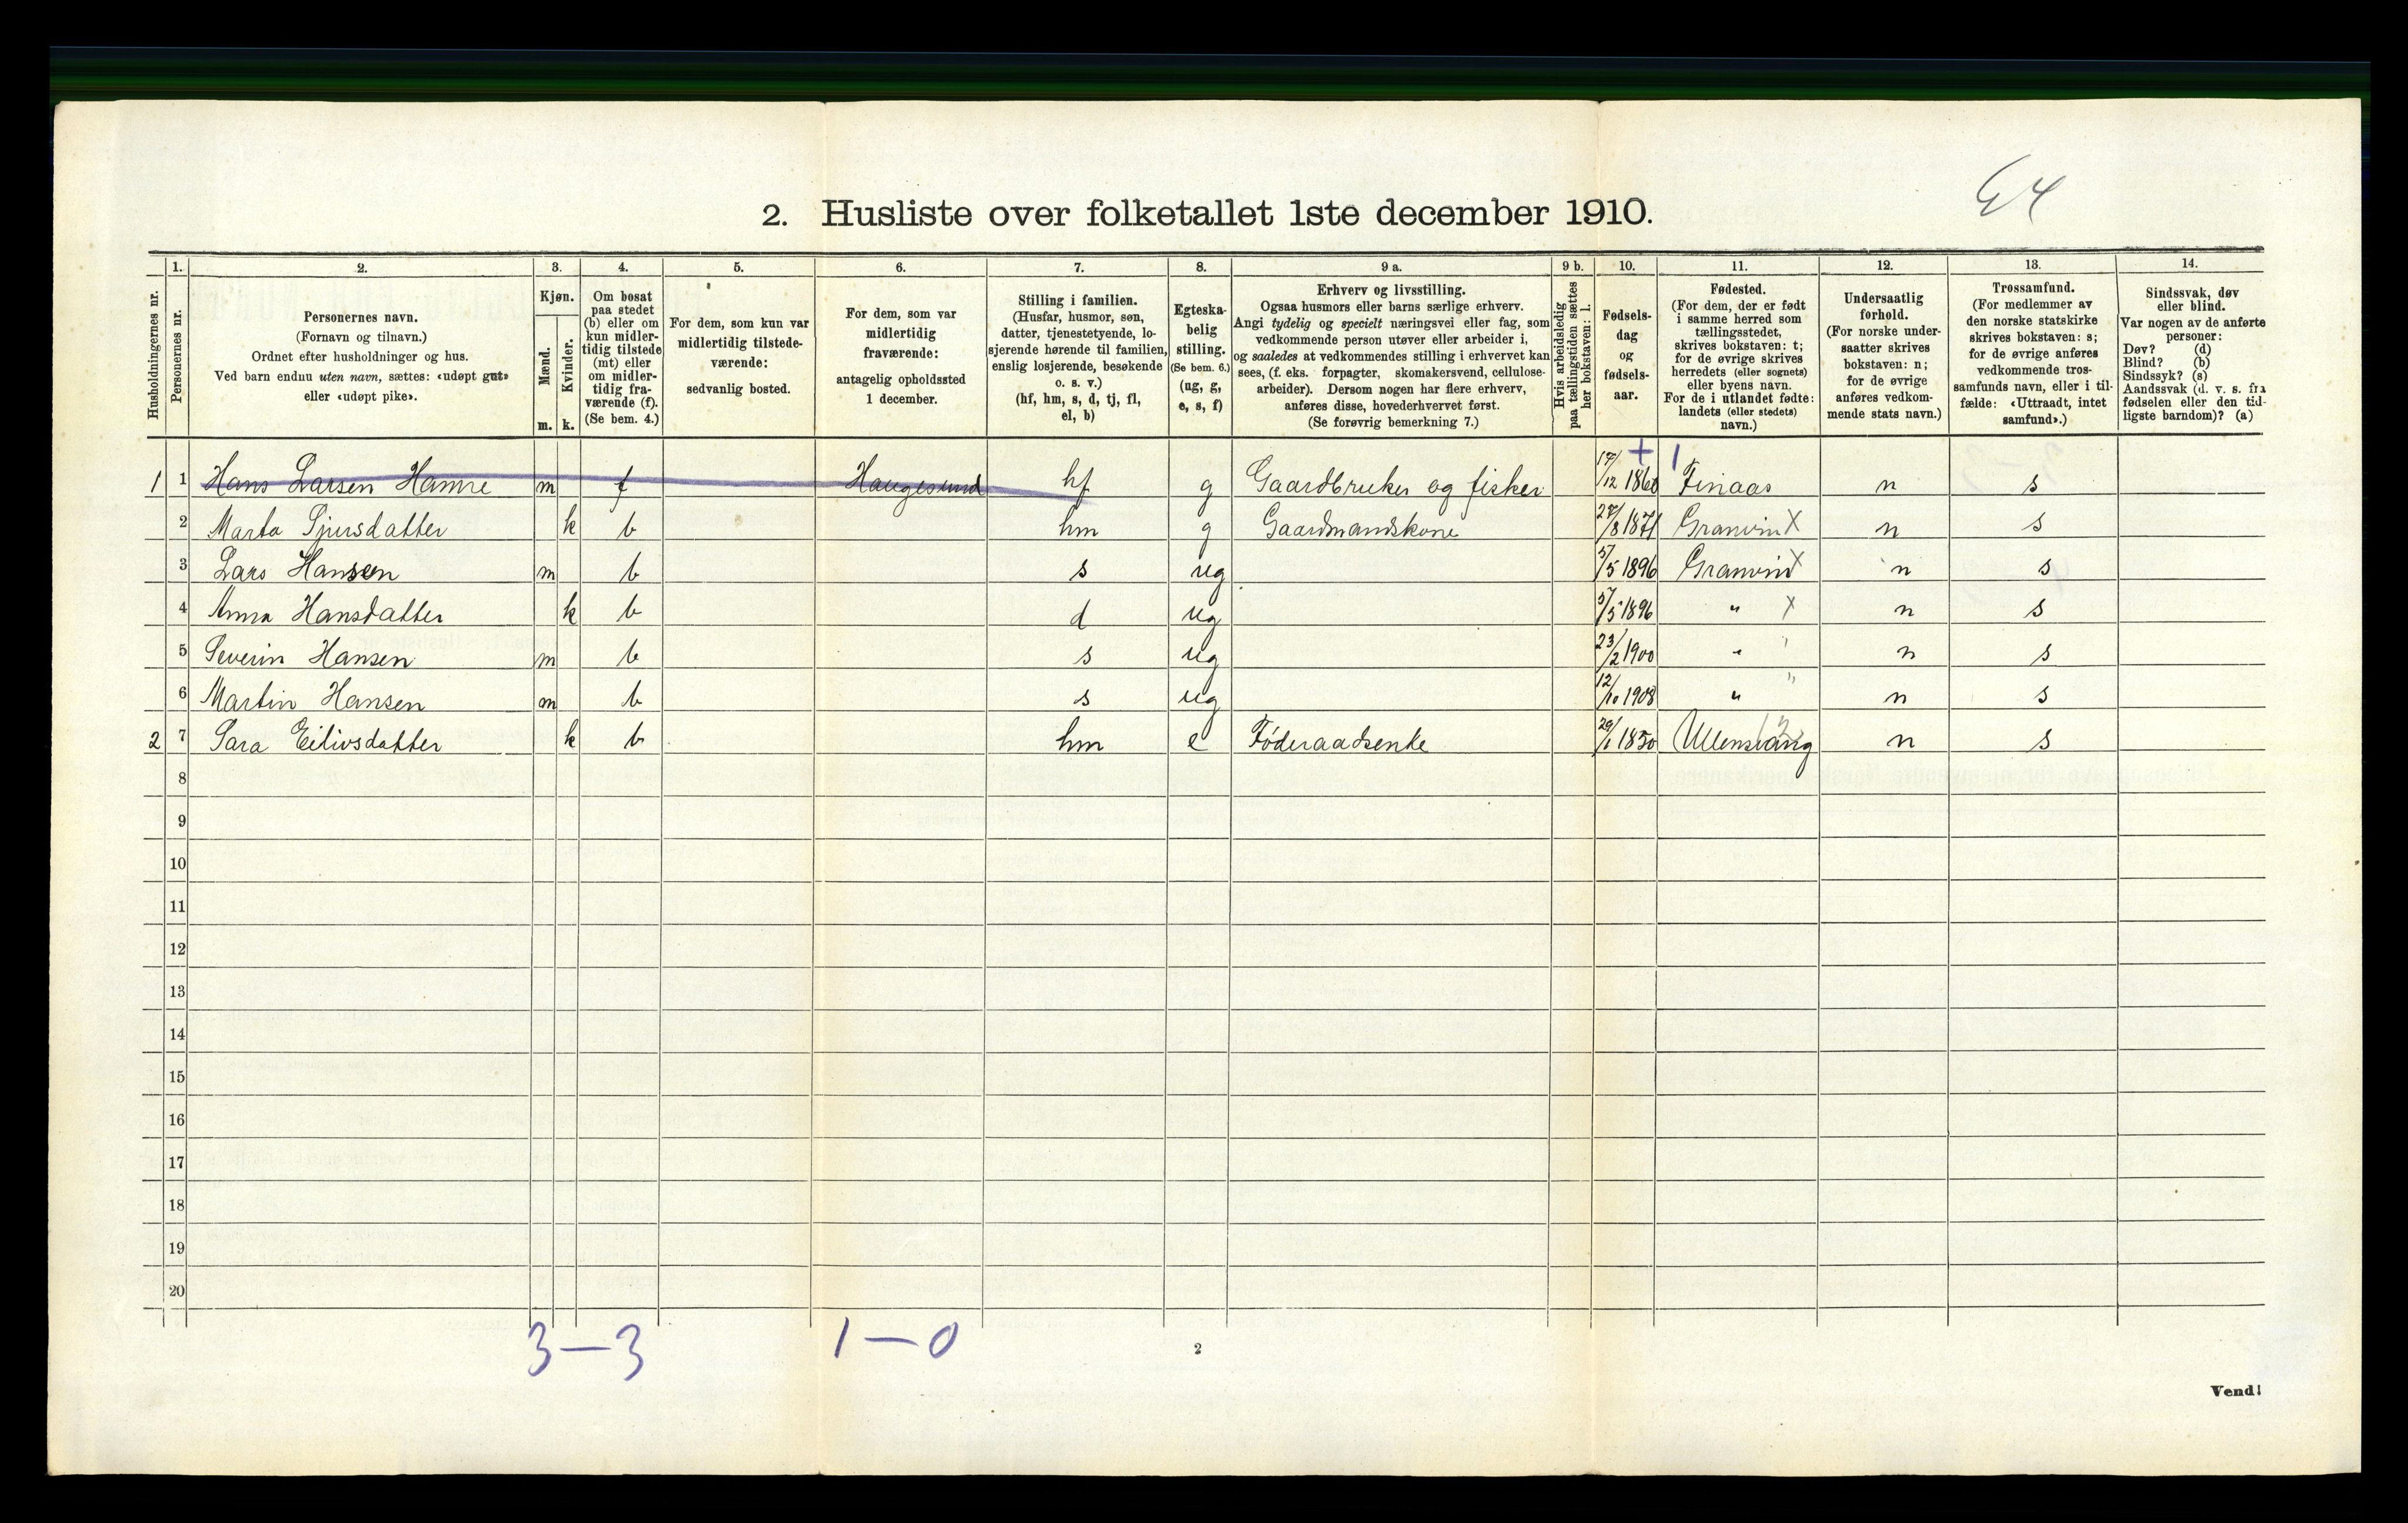 64
2. Husliste over folketallet 1ste december 1910.
Husholdningernes nr.
1.
Personernes nr.
2.
Personernes navn.
(Fornavn og tilnavn.)
Ordnet efter husholdninger og hus.
Ved barn endnu uten navn, sættes: «udøpt gut»
eller «udøpt pike».
3.
Kjøn.
Mænd.
m.
Kvinder.
k.
4.
Om bosat
paa stedet
(b) eller om
kun midler-
tidig tilstede
(mt) eller
om midler-
tidig fra-
værende (f).
(Se bem. 4.)
5.
For dem, som kun var
midlertidig tilstede-
værende:
sedvanlig bosted.
6.
For dem, som var
midlertidig
fraværende:
antagelig opholdssted
1 december.
7.
Stilling i familien.
(Husfar, husmor, søn,
datter, tjenestetyende, lo-
sjerende hørende til familien,
enslig losjerende, besøkende
o. s. v.)
(hf, hm, s, d, tj, fl,
el, b)
8.
Egteska-
belig
stilling.
(Se bem. 6.)
(ug, g,
e, s, f)
9 a.
Erhverv og livsstilling.
Ogsaa husmors eller barns særlige erhverv.
Angi tydelig og specielt næringsvei eller fag, som
vedkommende person utøver eller arbeider i,
og saaledes at vedkommendes stilling i erhvervet kan
sees, (f. eks. forpagter, skomakersvend, cellulose-
arbeider). Dersom nogen har flere erhverv,
anføres disse, hovederhvervet først.
(Se forøvrig bemerkning 7.)
9 b.
Hvis arbeidsledig
paa tællingstiden sættes
her bokstaven: l.
10.
Fødsels-
dag
og
fødsels-
aar.
11.
Fødested.
(For dem, der er født
i samme herred som
tællingsstedet,
skrives bokstaven: t;
for de øvrige skrives
herredets (eller sognets)
eller byens navn.
For de i utlandet fødte:
landets (eller stedets)
navn.)
12.
Undersaatlig
forhold.
(For norske under-
saatter skrives
bokstaven: n;
for de øvrige
anføres vedkom-
mende stats navn.)
13.
Trossamfund.
(For medlemmer av
den norske statskirke
skrives bokstaven: s;
for de øvrige anføres
vedkommende tros-
samfunds navn, eller i til-
fælde: «Uttraadt, intet
samfund».)
14.
Sindssvak, døv
eller blind.
Var nogen av de anførte
personer:
Døv? (d)
Blind? (b)
Sindssyk? (s)
Aandssvak (d. v. s. fra
fødselen eller den tid-
ligste barndom)? (a)
+ 1
1 1 Hans Larsen Hamre m f Haugesund hf g Gaardbruker og fisker 17/12 1860 Finaas n s
2 Marta Sjursdatter k b hm g Gaardmandskone 28/8 1871 Granvin X n s
3 Lars Hansen m b s ug 5/5 1896 Granvin X n s
4 Anna Hansdatter k b d ug 5/5 1896 " X n s
5 Severin Hansen m b s ug 23/2 1900 " " n s
6 Martin Hansen m b s ug 12/10 1908 " " n s
2 7 Sara Eilivsdatter k b hm e Føderaadsenke 29/1 1850 Ullensvang n s
8
9
10
11
12
13
14
15
16
17
18
19
20
3 – 3 1 – 0
2
Vend!